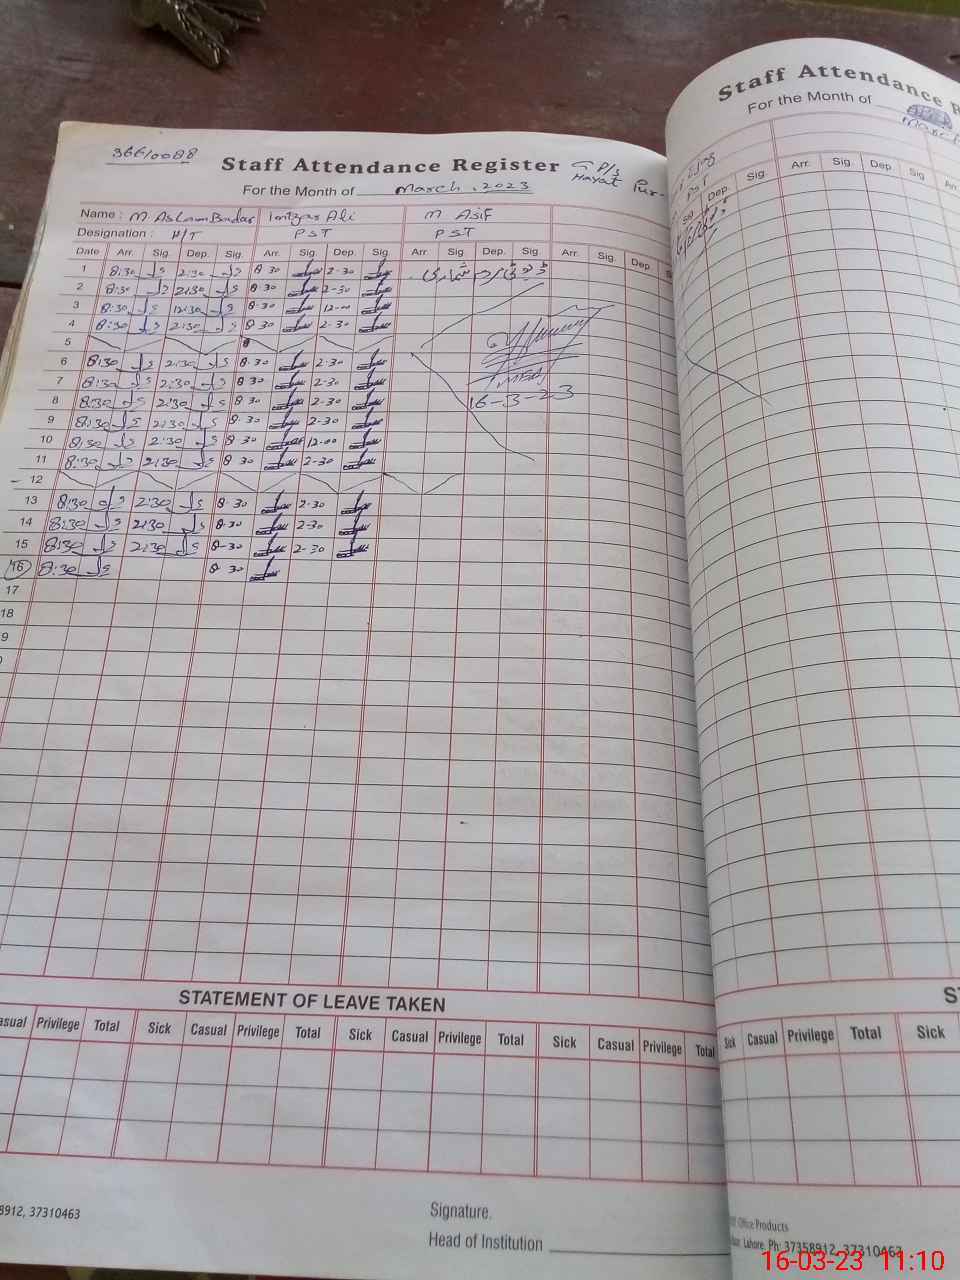 36610088
Staff Attendance Register
G P/s
Hayat Pur
For the Month of March, 2023
Name : M Aslam Intzar Ali M Asif
Designation : H/T PST PST
Date Arr. Sig. Dep. Sig. Arr. Sig. Dep. Sig. Arr. Sig. Dep. Sig. Arr. Sig. Dep.
1 8:30 2:30 8 30 2-30 ڈیوٹی مردم شماری
2 8:30 2:30 8 30 2-30
3 8:30 12:30 8 30 12-00
4 8:30 2:30 8 30 2-30
5
6 8:30 2:30 8-30 2-30
7 8:30 2:30 8 30 2-30
8 8:30 2:30 8 30 2-30
16-3-23
9 8:30 2:30 8 30 2-30
10 8:30 2:30 8 30 12-00
11 8:30 2:30 8 30 2-30
12
13 8:30 2:30 8-30 2-30
14 8:30 2:30 8-30 2-30
15 8:30 2:30 8-30 2-30
16 8:30 8 30
17
18
9
STATEMENT OF LEAVE TAKEN
Privilege Total Sick Casual Privilege Total Sick Casual Privilege Total Sick Casual Privilege Total
8912, 37310463
Signature.
Head of Institution
Staff Attendance
For the Month of March
PST
Sig. Dep. Sig. Arr. Sig. Dep. Sig.
Sick Casual Privilege Total Sick
Office Products
Lahore. Ph: 37358912, 37310463
16-03-23 11:10